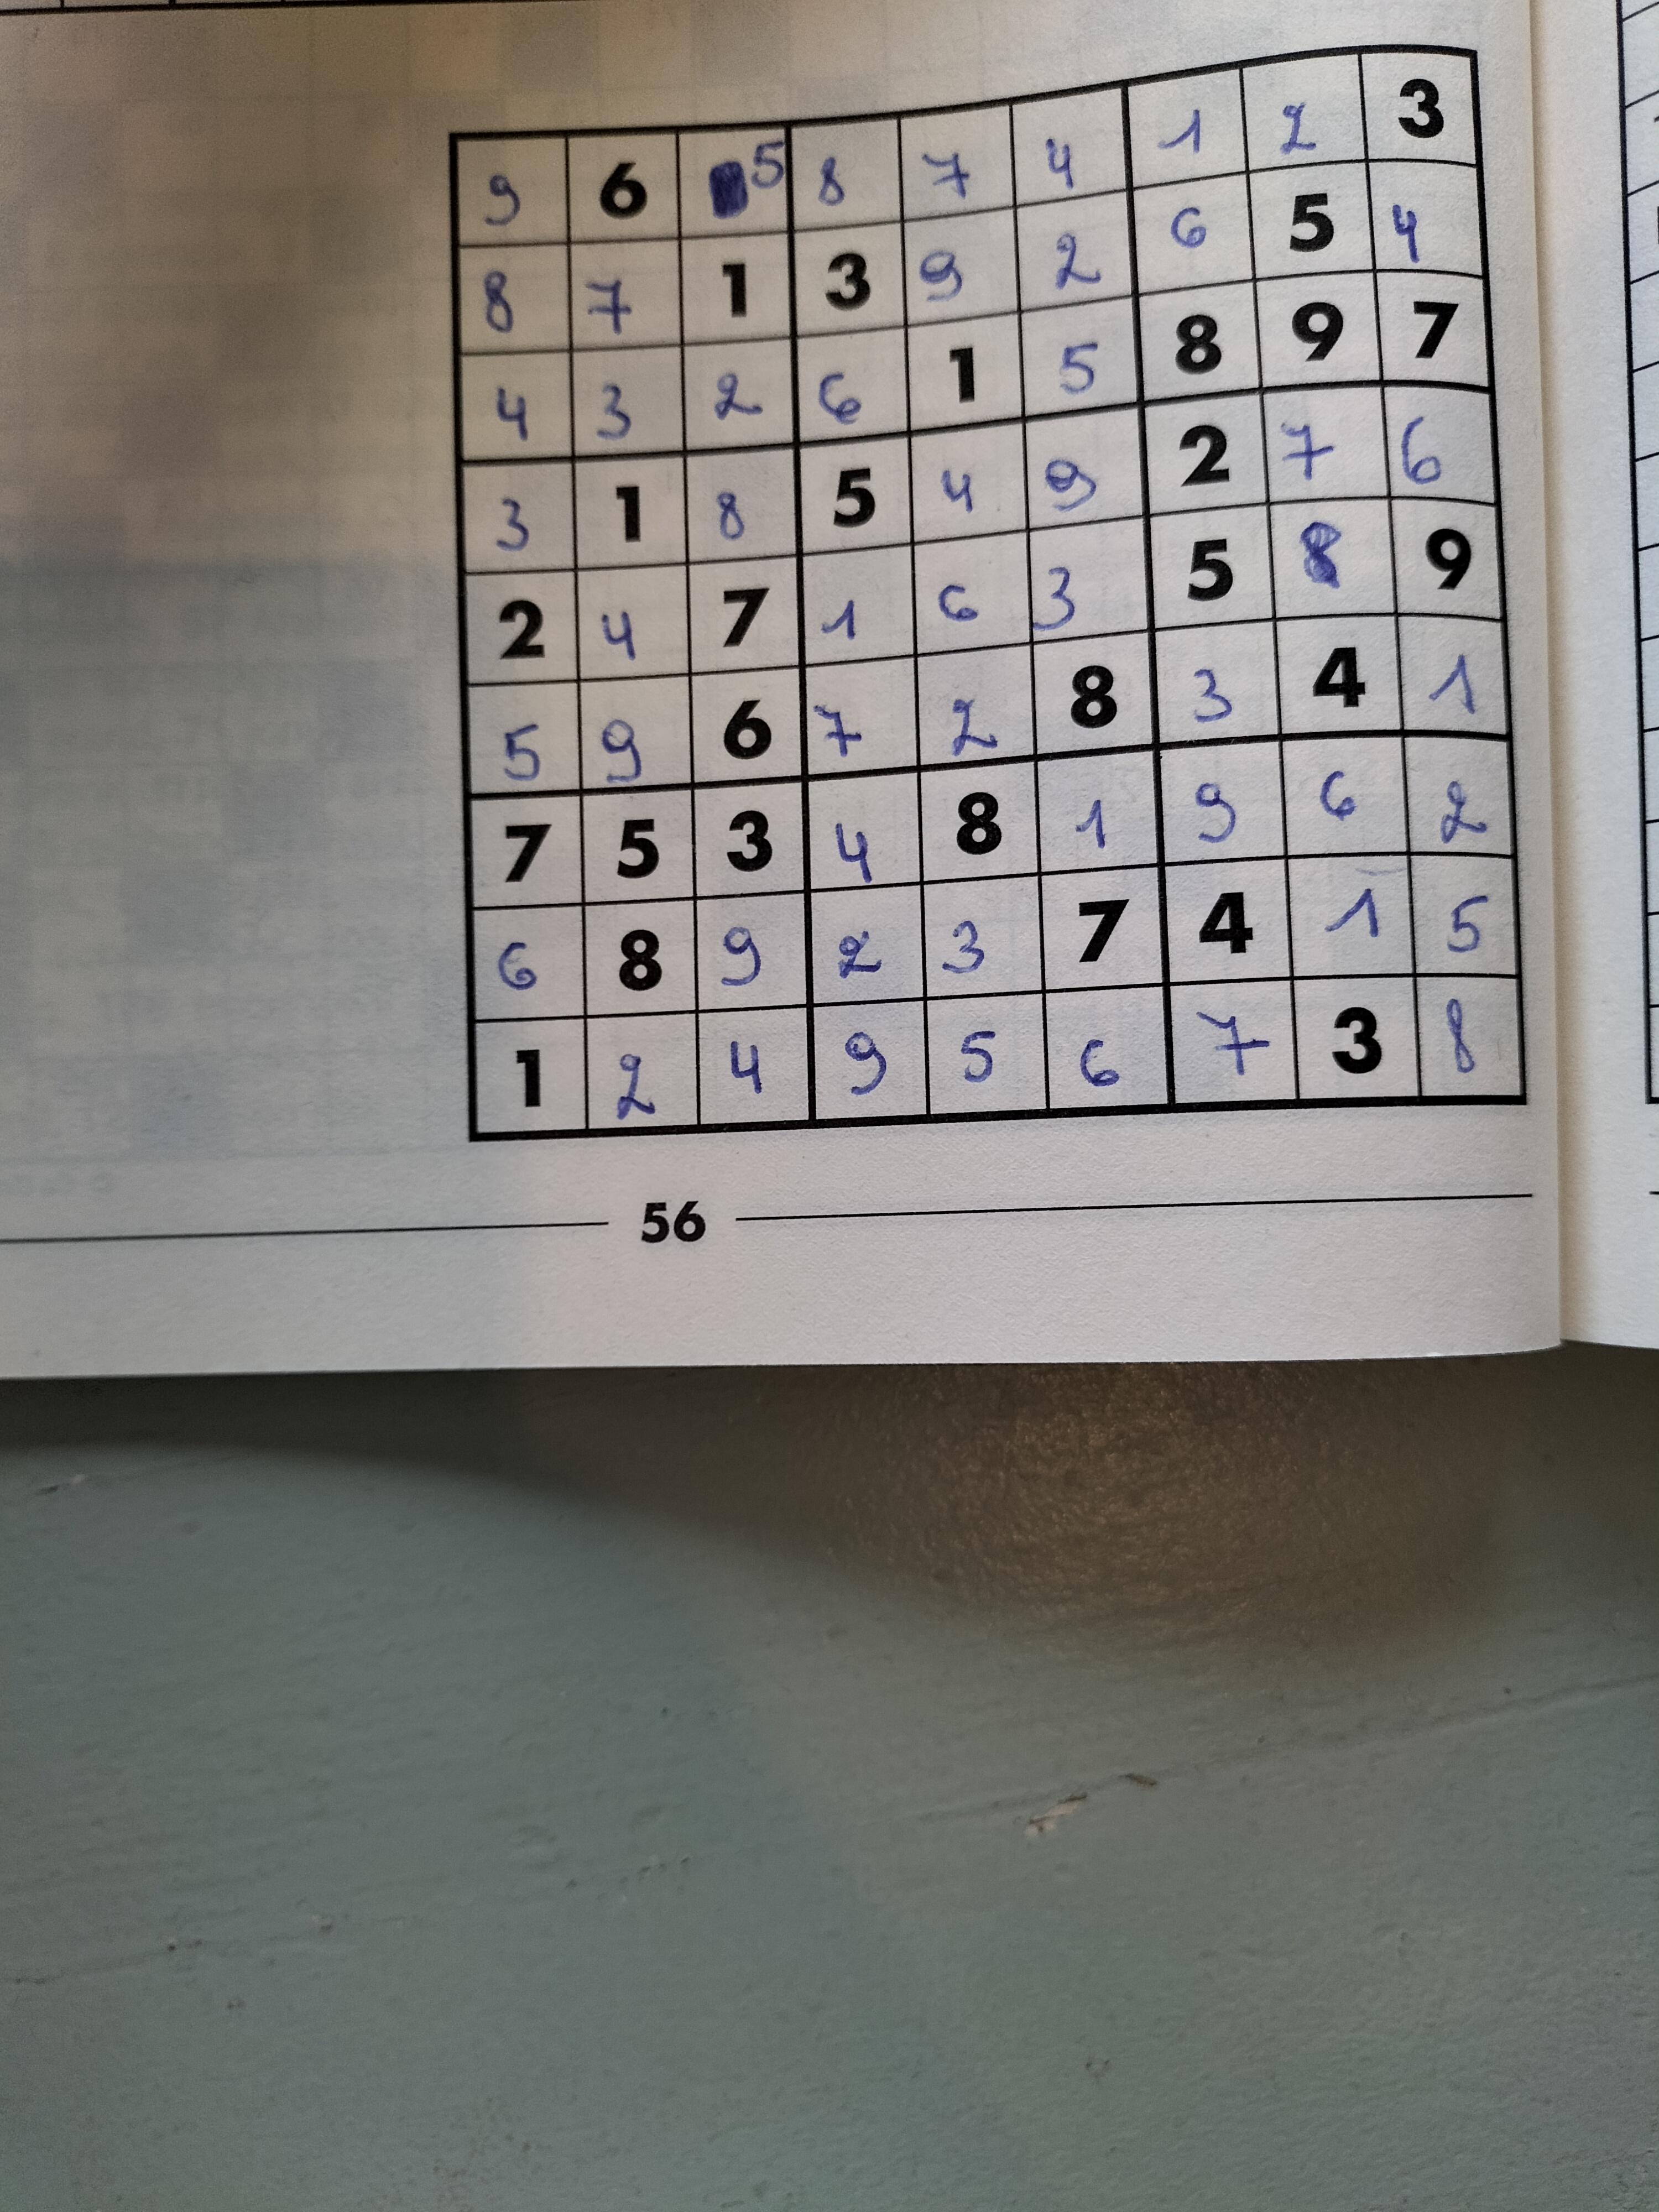 9 6 5 8 7 4 1 2 3
8 7 1 3 9 2 6 5 4
4 3 2 6 1 5 8 9 7
3 1 8 5 4 9 2 7 6
2 4 7 1 6 3 5 8 9
5 9 6 7 2 8 3 4 1
7 5 3 4 8 1 9 6 2
6 8 9 2 3 7 4 1 5
1 2 4 9 5 6 7 3 8
56